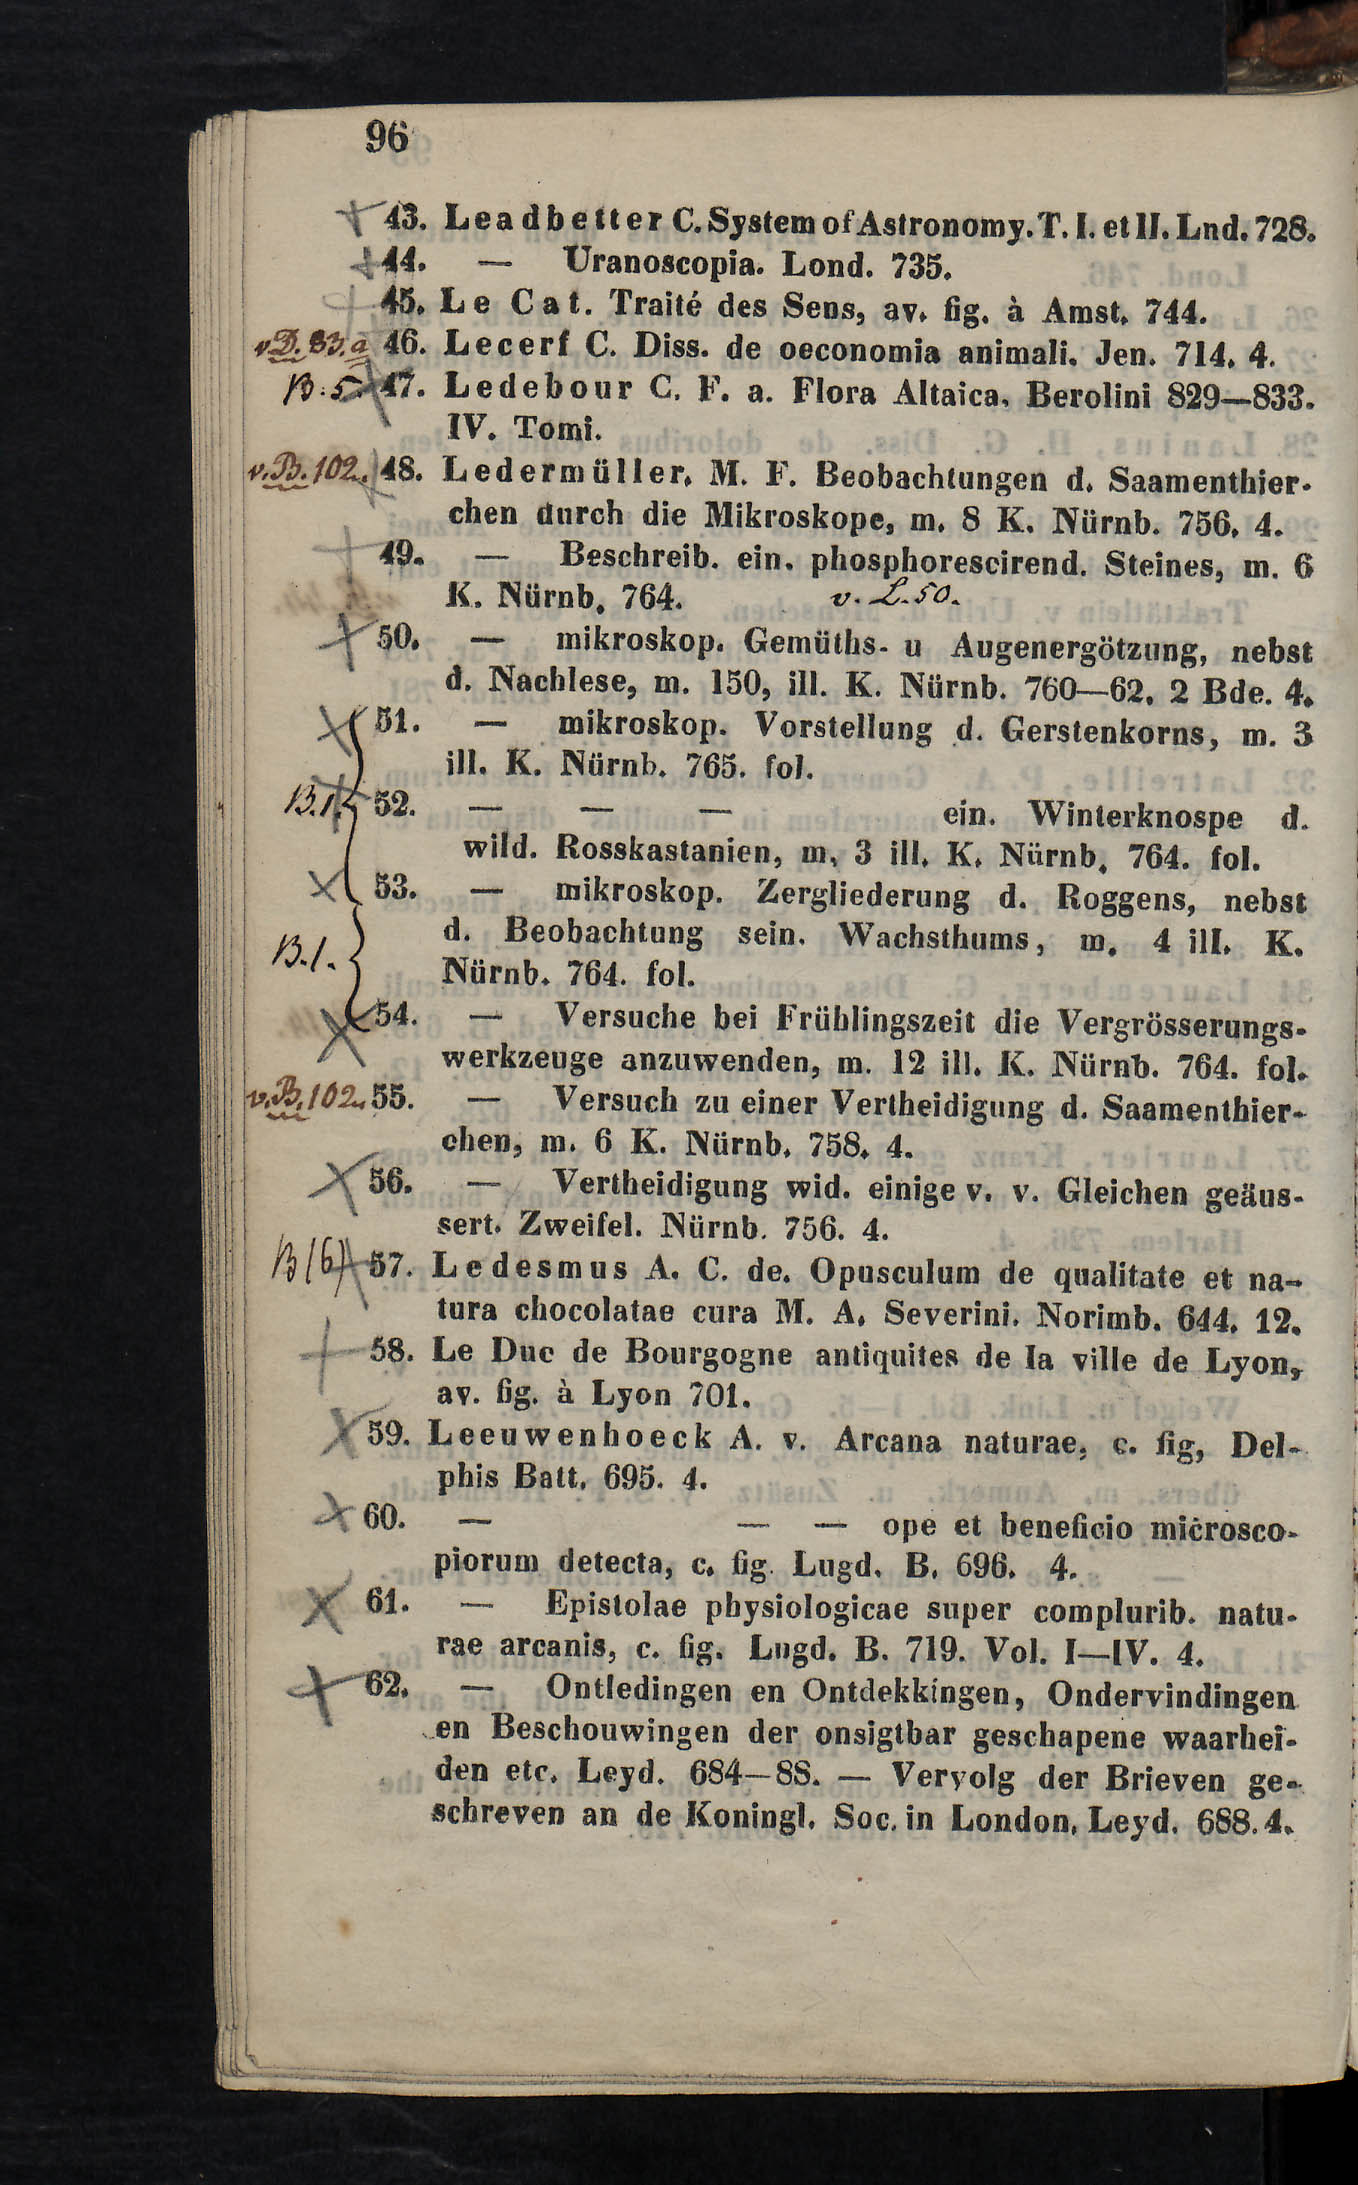 96
43. Leadbetter C. System of Astronomy. T. I. et II. Lnd. 728.
44. — Uranoscopia. Lond. 735.
45. Le Cat. Traité des Sens, av. fig. à Amst. 744.
v.D. 83.a 46. Lecerf C. Diss. de oeconomia animali. Jen. 714. 4.
B. 5. 47. Ledebour C. F. a. Flora Altaica. Berolini 829—833.
IV. Tomi.
v.B. 102. 48. Ledermüller, M. F. Beobachtungen d. Saamenthier-
chen durch die Mikroskope, m. 8 K. Nürnb. 756. 4.
49. — Beschreib. ein. phosphorescirend. Steines, m. 6
K. Nürnb. 764. v. L. 50.
50. — mikroskop. Gemüths- u Augenergötzung, nebst
d. Nachlese, m. 150, ill. K. Nürnb. 760—62. 2 Bde. 4.
51. — mikroskop. Vorstellung d. Gerstenkorns, m. 3
ill. K. Nürnb. 765. fol.
B.1. 52. — — — ein. Winterknospe d.
wild. Rosskastanien, m. 3 ill. K. Nürnb. 764. fol.
53. — mikroskop. Zergliederung d. Roggens, nebst
B.1. d. Beobachtung sein. Wachsthums, m. 4 ill. K.
Nürnb. 764. fol.
54. — Versuche bei Frühlingszeit die Vergrösserungs-
werkzeuge anzuwenden, m. 12 ill. K. Nürnb. 764. fol.
v.B. 102. 55. — Versuch zu einer Vertheidigung d. Saamenthier-
chen, m. 6 K. Nürnb. 758. 4.
56. — Vertheidigung wid. einige v. v. Gleichen geäus-
sert. Zweifel. Nürnb. 756. 4.
B (6) 57. Ledesmus A. C. de. Opusculum de qualitate et na-
tura chocolatae cura M. A. Severini. Norimb. 644. 12.
58. Le Duc de Bourgogne antiquites de la ville de Lyon,
av. fig. à Lyon 701.
59. Leeuwenhoeck A. v. Arcana naturae, c. fig, Del-
phis Batt. 695. 4.
60. — — — ope et beneficio microsco-
piorum detecta, c. fig. Lugd. B. 696. 4.
61. — Epistolae physiologicae super complurib. natu-
rae arcanis, c. fig. Lugd. B. 719. Vol. I—IV. 4.
62. — Ontledingen en Ontdekkingen, Ondervindingen
en Beschouwingen der onsigtbar geschapene waarhei-
den etc. Leyd. 684—88. — Vervolg der Brieven ge-
schreven an de Koningl. Soc. in London, Leyd. 688. 4.